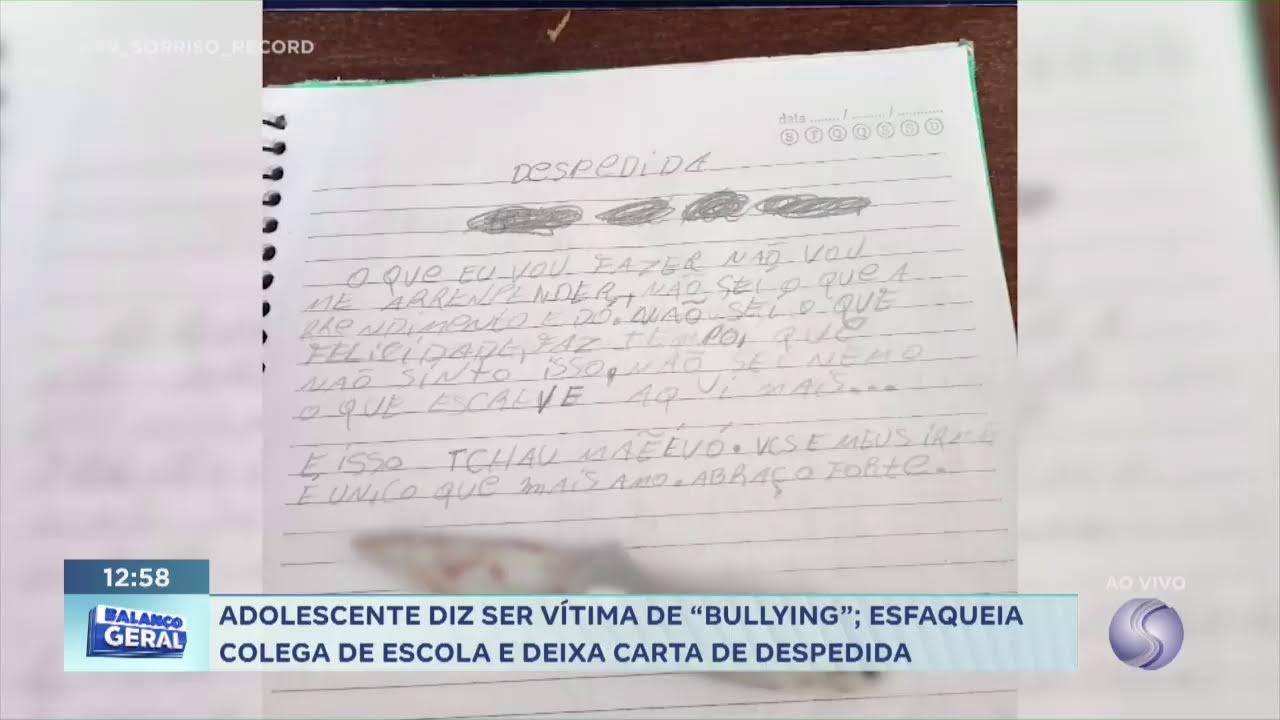 TV_SORRISO_RECORD
data ....... / ......... / ...........
S T Q Q S S D
DESPEDIDA
O QUE EU VOU FAZER NÃO VOU
ME ARRENPENDER, NÃO SEI O QUE A
RRENDIMENTO E DÓ. NÃO SEI O QUE
FELICIDADE, FAZ TEMPO, QUE
NÃO SINTO ISSO, NÃO SEI NEMO
O QUE ESCREVE AQUI MAIS...
E ISSO TCHAU MÃE É VÓ. VCS E MEUS
É UNICO QUE MAIS AMO. ABRAÇO FORTE.
12:58
BALANÇO
GERAL
ADOLESCENTE DIZ SER VÍTIMA DE “BULLYING”; ESFAQUEIA
COLEGA DE ESCOLA E DEIXA CARTA DE DESPEDIDA
AO VIVO